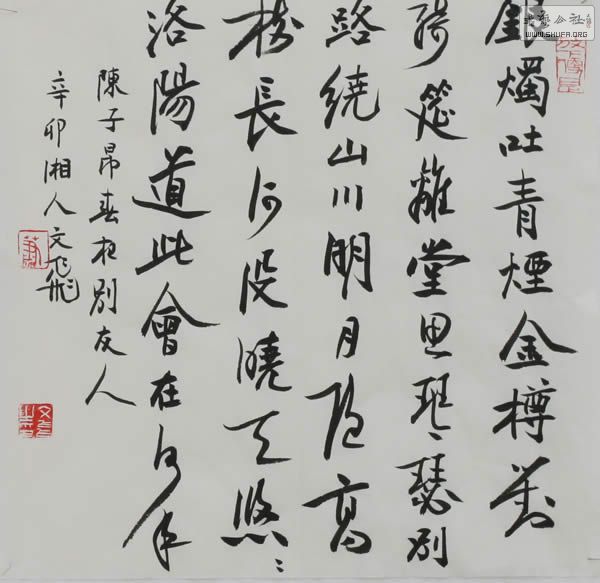 銀燭吐青煙金樽對
綺筵離堂思琴瑟別
路繞山川明月隱高
樹長河沒曉天悠〻
洛陽道此會在何年
陳子昂春夜別友人
辛卯湘人文飛
書藝公社
WWW.SHUFA.ORG